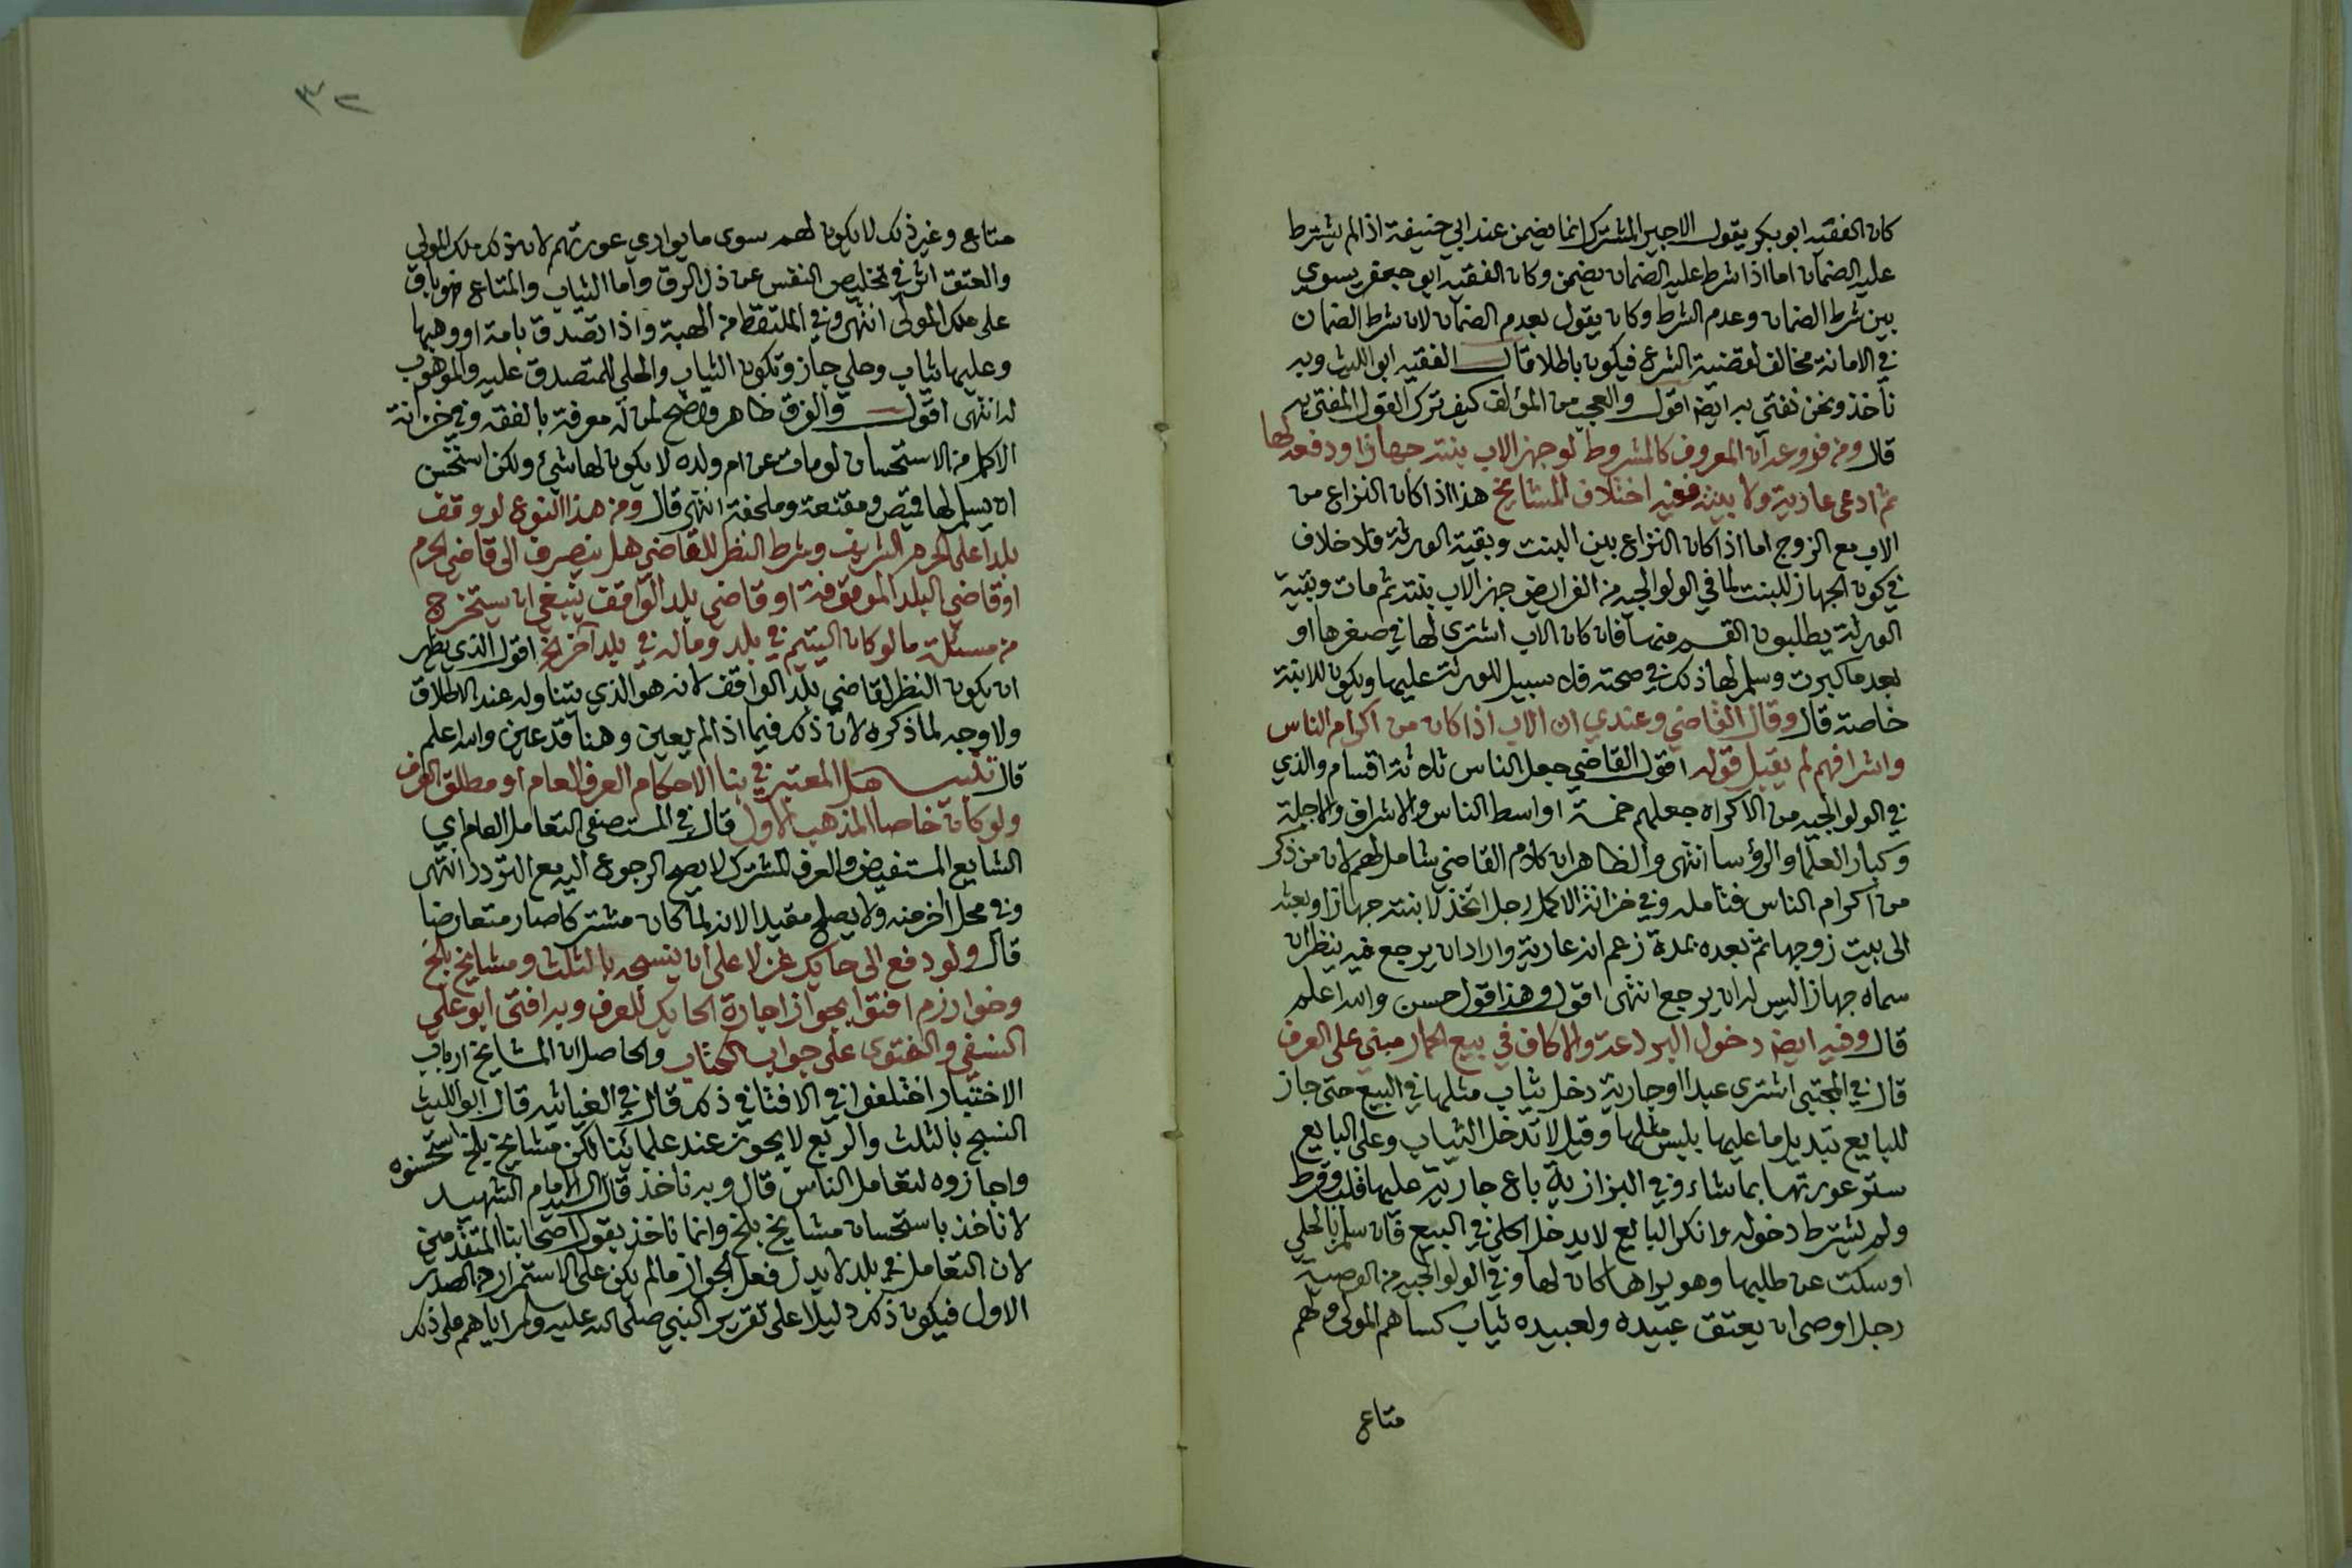 كان الفقيه ابو بكر يقول الاجير المشترك انما يضمن عند ابي حنيفة اذا لم يشترط
عليه الضمان اما اذا شرط عليه الضمان يضمن وكان الفقيه ابو جعفر يسوي
بين شرط الضمان وعدم الشرط وكان يقول بعدم الضمان لان شرط الضمان
في الامانة مخالف لقضية الشرع فيكون باطلا قال الفقيه ابو الليث وبه
ناخذ ونحن نفتي به ايضا اقول والعجب من المؤلف كيف ترك القول المفتى به
قال ومن فروعه ان المعروف كالمشروط لو جهز الاب بنته جهازا ودفعه لها
ثم ادعى عارية ولا بينة ففيه اختلاف المشايخ هذا اذا كان النزاع من
الاب مع الزوج اما اذا كان النزاع بين البنت وبقية الورثة فلا خلاف
في كون الجهاز للبنت لما في الولوالجيه من الفرايض جهز الاب بنته ثم مات وبقية
الورثة يطلبون القسم منها فان كان الاب اشترى لها في صغرها او
بعد ما كبرت وسلم لها ذلك في صحته فلا سبيل للورثة عليها ويكون للابنة
خاصة قال وقال القاضي وعندي ان الاب اذا كان من اكرام الناس
واشرافهم لم يقبل قوله اقول القاضي جعل الناس ثلاثة اقسام والذي
في الولوالجيه من الاكراه جعلهم خمسة اواسط الناس والاشراف والاجلة
وكبار العلما والرؤسا انتهى والظاهر ان كلام القاضي شامل لهم لان من ذكر
من اكرام الناس فتامله وفي خزانة الاكمل رجل اتخذ لابنته جهازا وبعثه
الى بيت زوجها ثم بعده بمدة زعم انه عارية واراد ان يرجع فيه ينظر ان
سماه جهازا ليس له ان يرجع انتهى اقول وهذا قول حسن والله اعلم
قال وفيه ايضا دخول البردعة والاكاف في بيع الحمار مبني على العرف
قال في المجتبى اشترى عبدا او جارية دخل ثياب مثلها في البيع حتى جاز
للبايع تبديل ما عليها بلبس مثلها وقيل لا تدخل الثياب وعلى البايع
ستر عورتها بما شاء وفي البزازية باع جارية عليها قلب وقرط
ولم يشترط دخوله وانكر البايع لا يدخل الحلي في البيع فان سلم بالحلي
او سكت عن طلبها وهو يراها كان لها وفي الولوالجيه من الوصية
رجل اوصى ان يعتق عبيده ولعبيده ثياب كساهم المولى ولهم
متاع
٣٢
متاع وغير ذلك لا يكون لهم سوى ما يواري عورتهم لان ذلك ملك المولى
والعتق اثر في تخليص النفس عن ذل الرق واما الثياب والمتاع فهو باق
على ملك المولى انتهى وفي الملتقط من الهبة واذا تصدق بامة او وهبها
وعليها ثياب وحلي جاز وتكون الثياب والحلي للمتصدق عليه والموهوب
له انتهى اقول والفرق ظاهر واضح لمن له معرفة بالفقه وفي خزانة
الاكمل من الاستحسان لو مات عن ام ولده لا يكون لها شيء ولكن استحسن
ان يسلم لها قميص ومقنعة وملحفة انتهى قال ومن هذا النوع لو وقف
بلدا على الحرم الشريف وشرط النظر للقاضي هل ينصرف الى قاضي الحرم
او قاضي البلد الموقوفة او قاضي بلد الواقف ينبغي ان يستخرج
من مسئلة ما لو كان اليتيم في بلد وماله في بلد اخر الخ اقول الذي يظهر
ان يكون النظر لقاضي بلد الواقف لانه هو الذي يتناوله عند الاطلاق
ولا وجه لما ذكره لان ذلك فيما اذا لم يعين وهنا قد عين والله اعلم
قال تنبيه هل المعتبر في بنا الاحكام العرف العام او مطلق العرف
ولو كان خاصا المذهب الاول قال في المستصفى التعامل العام اي
الشايع المستفيض والعرف المشترك لا يصح الرجوع اليه مع التردد انتهى
وفي محل اخر منه ولا يصلح مقيدا لانه لما كان مشتركا صار متعارضا
قال ولو دفع الى حايك غزلا على ان ينسجه بالثلث ومشايخ بلخ
وخوارزم افتوا بجواز اجارة الحايك للعرف وبه افتى ابو علي
النسفي والفتوى على جواب الكتاب والحاصل ان المشايخ ارباب
الاختيار اختلفوا في الافتا في ذلك قال في الغياثيه قال ابو الليث
النسج بالثلث والربع لا يجوز عند علمائنا لكن مشايخ بلخ استحسنوه
واجازوه لتعامل الناس قال وبه ناخذ قال السيد الامام الشهيد
لا ناخذ باستحسان مشايخ بلخ وانما ناخذ بقول اصحابنا المتقدمين
لان التعامل في بلد لا يدل فعل الجواز ما لم يكن على الاستمرار من الصدر
الاول فيكون ذلك دليلا على تقرير النبي صلى الله عليه وسلم اياهم على ذلك